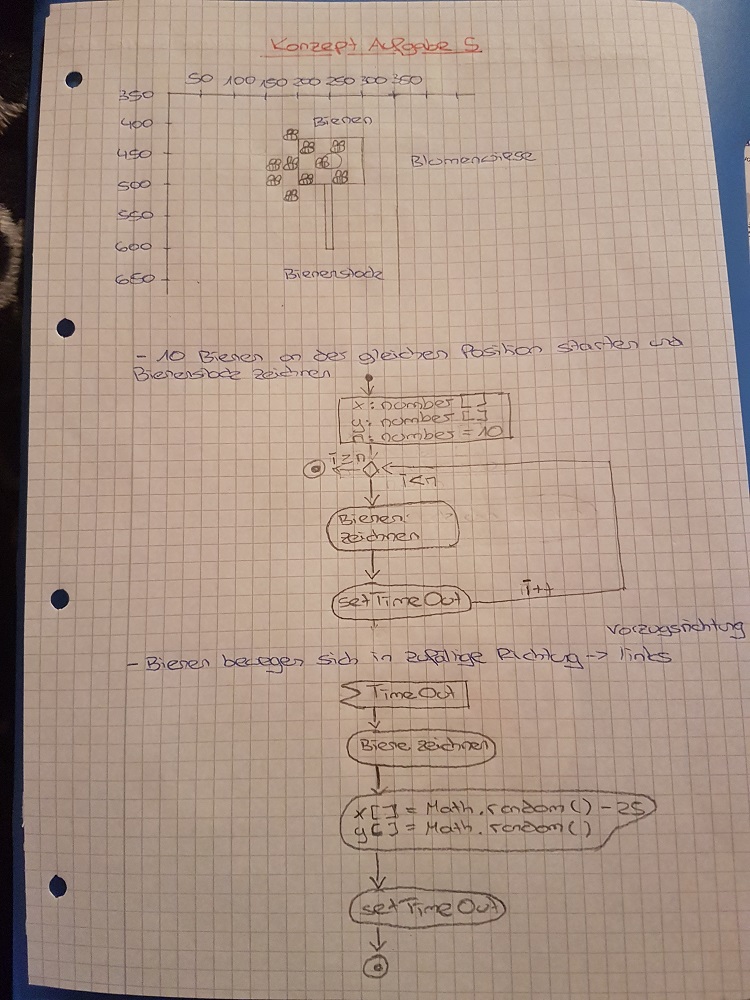 Konzept Aufgabe 5
50 100 150 200 250 300 350
350
400
450
500
550
600
650
Bienen
Blumenwiese
Bienenstock
- 10 Bienen an der gleichen Position starten und
Bienenstock zeichnen
x: number []
y: number []
n: number = 10
i ≥ n
i < n
Bienen
zeichnen
setTimeOut
i++
Vorzugsrichtung
- Bienen bewegen sich in zufällige Richtug → links
TimeOut
Biene zeichnen
x[] = Math.random() - 25
y[] = Math.random()
setTimeOut